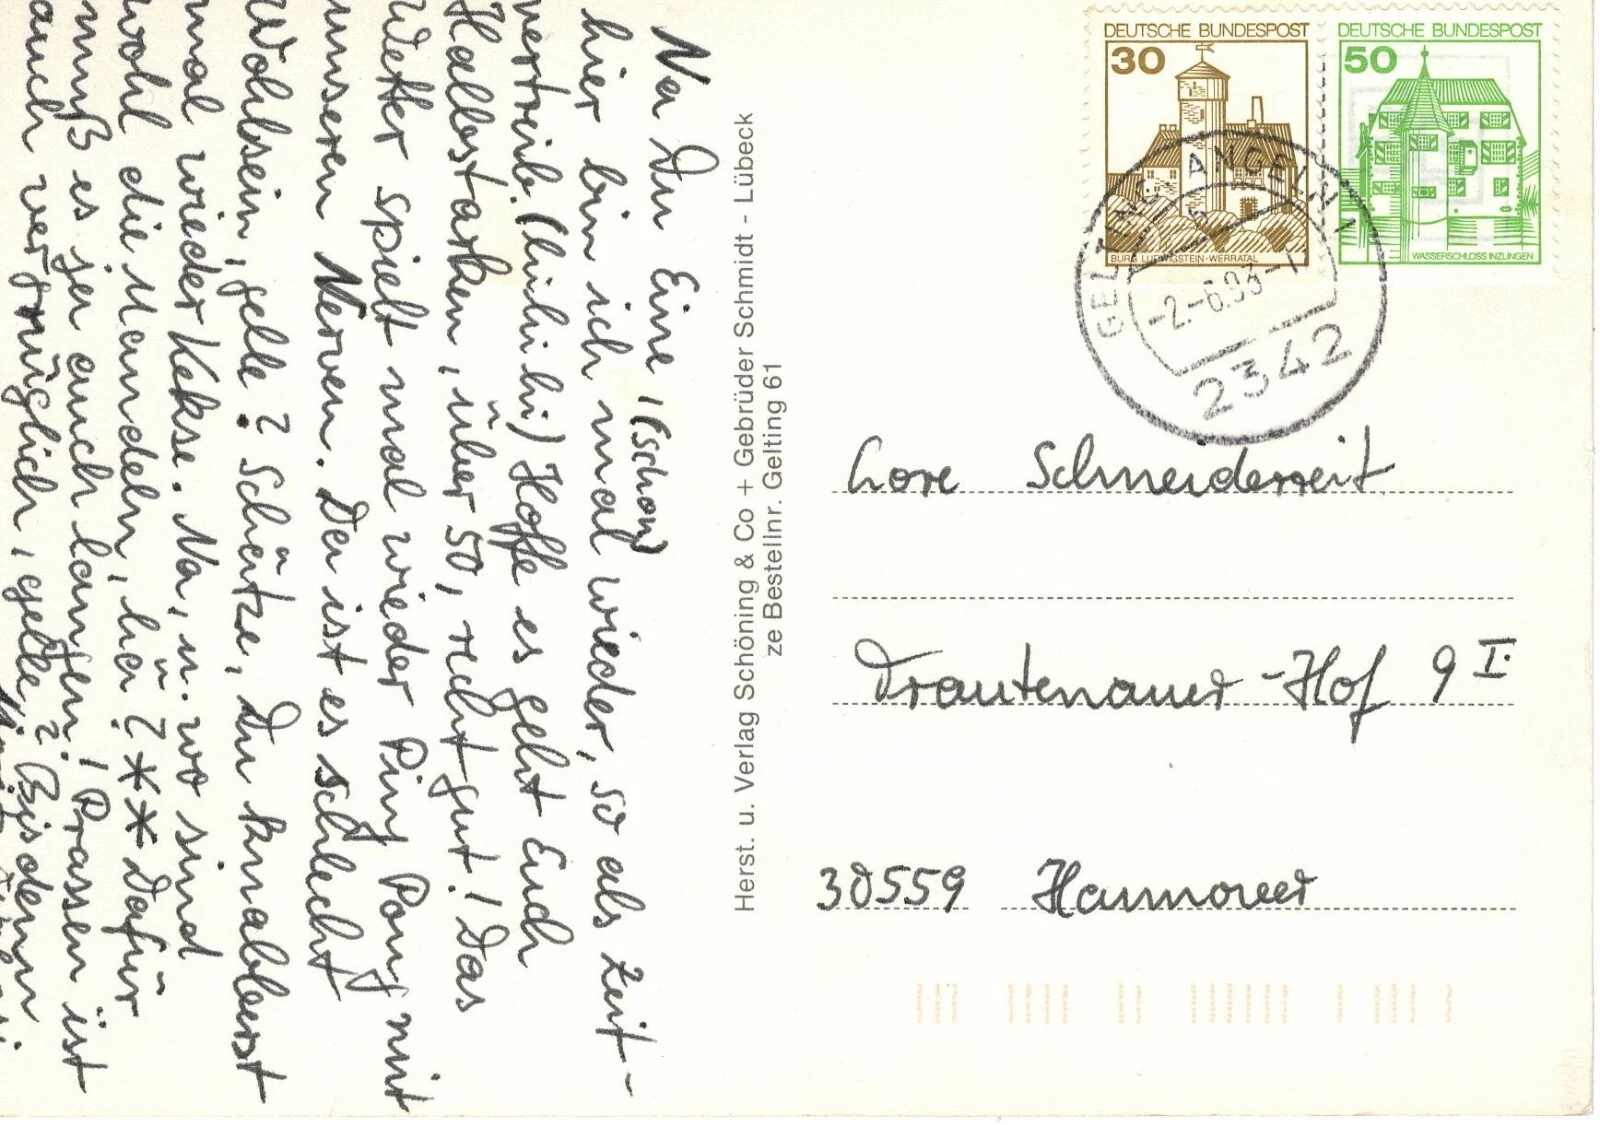 Na Du Eine! (schon)
hier bin ich mal wieder, so als Zeit-
vertreib. (hihihi) Hoffe es geht Euch
Halbstarken, über 50, recht gut! Das
Wetter spielt mal wieder Ping Pong mit
unseren Nerven. Der ist es schlecht
Wohlsein, gelle? Schätze, Du knabberst
mal wieder Kekse. Na, u. wo sind
wohl die Mandeln, hä? ** Dafür
muß es ja auch langen! Prassen ist
auch vergnüglich, gelle? Bis denn
Herst. u. Verlag Schöning & Co + Gebrüder Schmidt - Lübeck
ze Bestellnr. Gelting 61
DEUTSCHE BUNDESPOST
30
BURG LUDWIGSTEIN-WERRATAL
DEUTSCHE BUNDESPOST
50
WASSERSCHLOSS INZLINGEN
GELTING, ANGELN 1
-2.-6.93-
2342
Lore Schneidereit
Trautenauer-Hof 9 I.
30559 Hannover